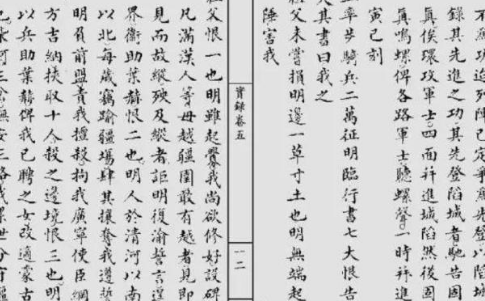 功迨列陣已定
錄其先進之功其先登陷城者馳告固
真俟環攻軍士四面並進城陷然後固
真鳴螺俾各路軍士聽螺聲一時並進
寅巳刻
上率步騎兵二萬征明臨行書七大恨告
天其書曰我之
祖父未嘗損明邊一草寸土也明無端起
陲害我
實錄卷五
一二
祖父恨一也明雖起釁我尚欲修好設碑
凡滿漢人等毋越疆圉敢有越者見即
見而故縱殃及縱者詎明復渝誓言逞
界衛助葉赫恨二也明人於清河以南
北每歲竊踰疆場肆其攘奪我遵誓
明負前盟責我擅殺拘我廣寧使臣綱
方吉納挾取十人殺之邊境恨三也明
以兵助葉赫俾我已聘之女改適蒙古
柴河三岔撫安三路我累世分守疆